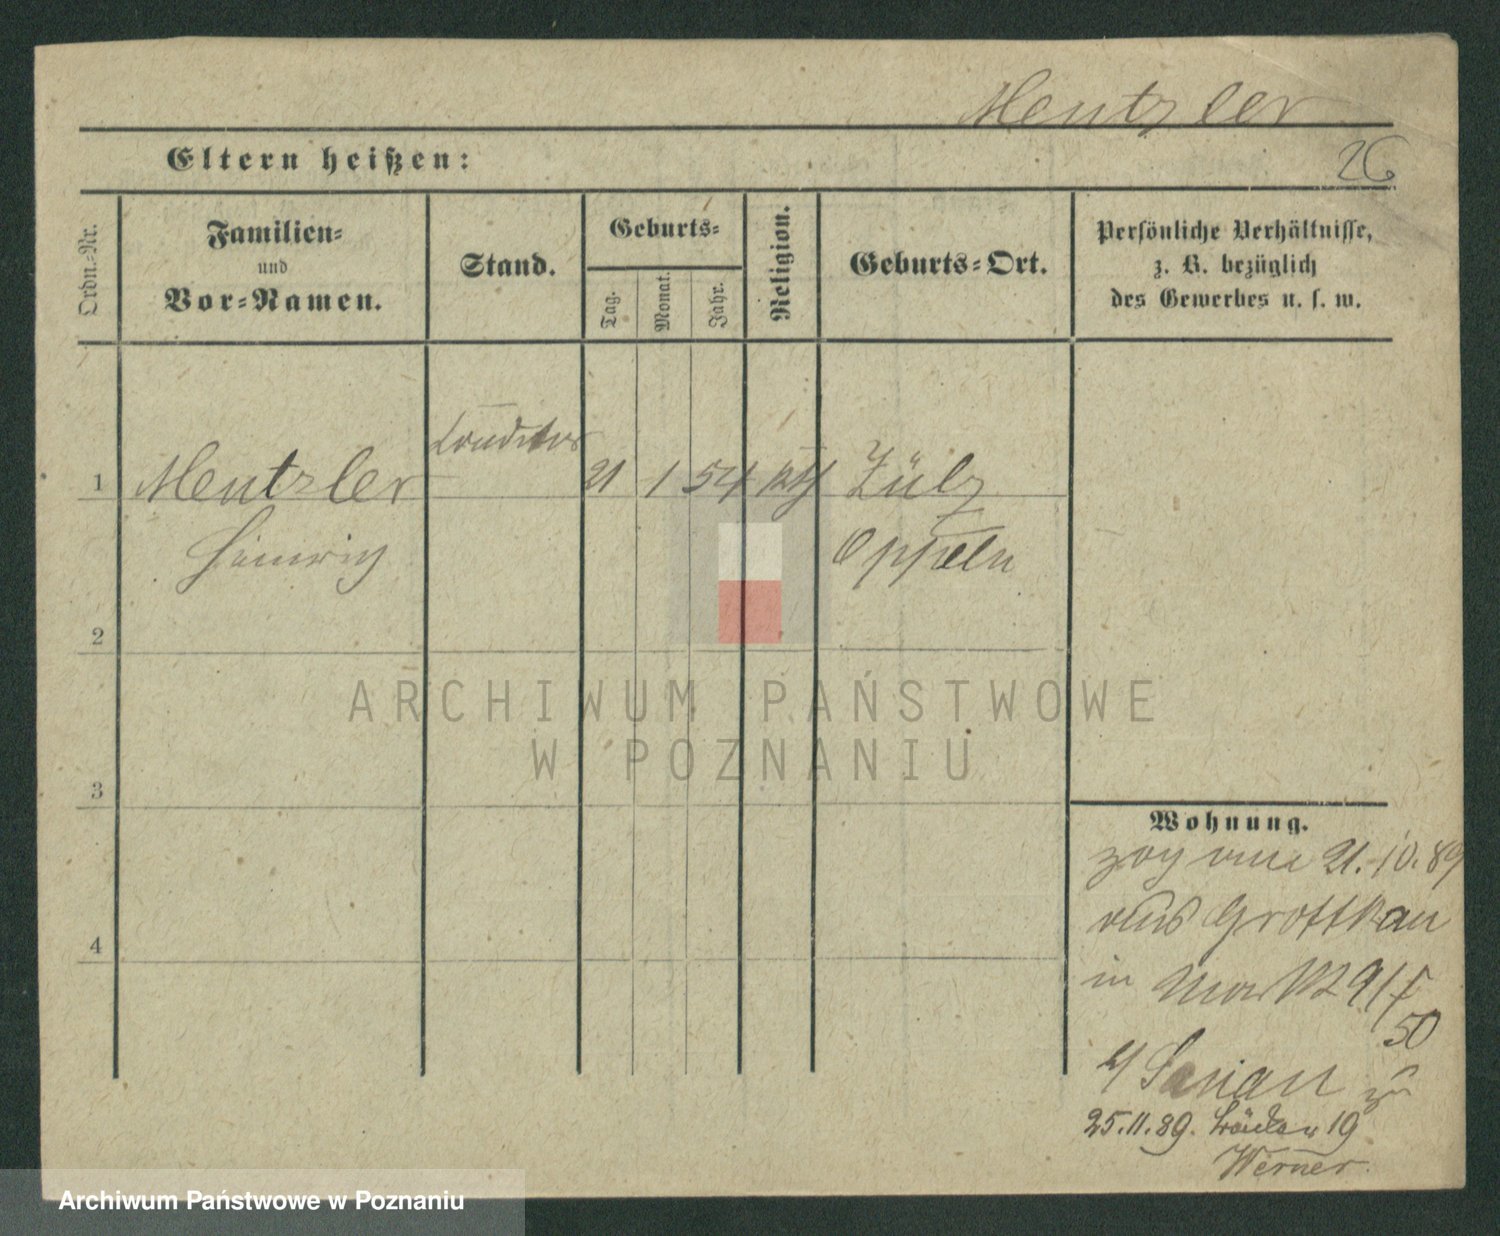 Mentzler
Eltern heißen:
26
Ordn.-Nr.
Familien-
und
Vor-Namen.
Stand.
Geburts-
Tag.
Monat.
Jahr.
Religion.
Geburts-Ort.
Persönliche Verhältnisse,
z. B. bezüglich
des Gewerbes u. s. w.
Conditor
1 Mentzler 21 1 54 kth Zülz
Heinrich Oppeln
2
ARCHIWUM PAŃSTWOWE
W POZNANIU
3
Wohnung.
zog am 21.10.89
aus Grottkau
in Markt 91
4
50
zu
25.11.89. 19
Werner.
Archiwum Państwowe w Poznaniu